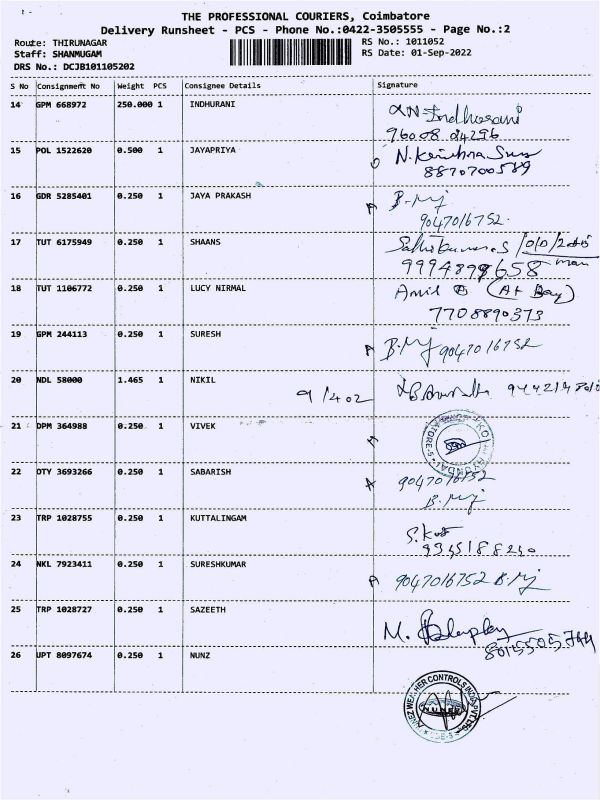 THE PROFESSIONAL COURIERS, Coimbatore
Delivery Runsheet - PCS - Phone No.:0422-3505555 - Page No.:2
Route: THIRUNAGAR RS No.: 1011052
Staff: SHANMUGAM RS Date: 01-Sep-2022
DRS No.: DCJB101105202
S No Consignment No Weight PCS Consignee Details Signature
14 GPM 668972 250.000 1 INDHURANI
96008 24296
15 POL 1522620 0.500 1 JAYAPRIYA
8870700589
16 GDR 5285401 0.250 1 JAYA PRAKASH
9047016752
17 TUT 6175949 0.250 1 SHAANS
18 TUT 1106772 0.250 1 LUCY NIRMAL
7708890373
19 GPM 244113 0.250 1 SURESH 9047016752
20 NDL 58000 1.465 1 NIKIL
9/402
21 DPM 364988 0.250 1 VIVEK
22 OTY 3693266 0.250 1 SABARISH 9047016752
23 TRP 1028755 0.250 1 KUTTALINGAM
24 NKL 7923411 0.250 1 SURESHKUMAR 9047016752
25 TRP 1028727 0.250 1 SAZEETH
M.
26 UPT 8097674 0.250 1 NUNZ